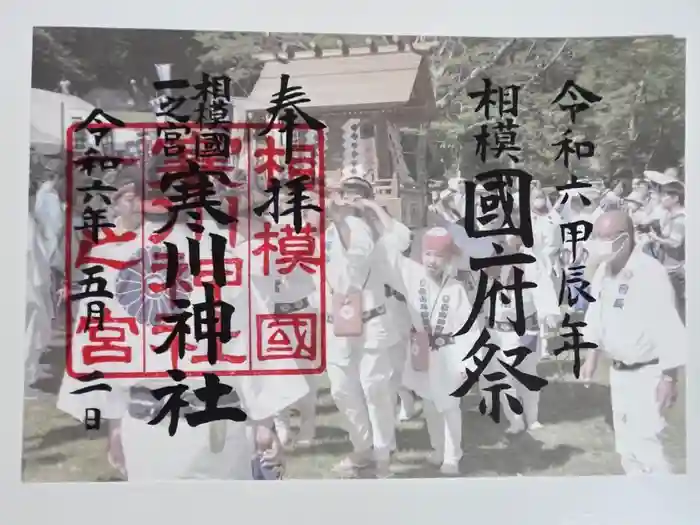 令和六甲辰年
相模國府祭
奉拝
相模國
一之宮
寒川神社
令和六年五月二日
相模國
寒川神社
一之宮